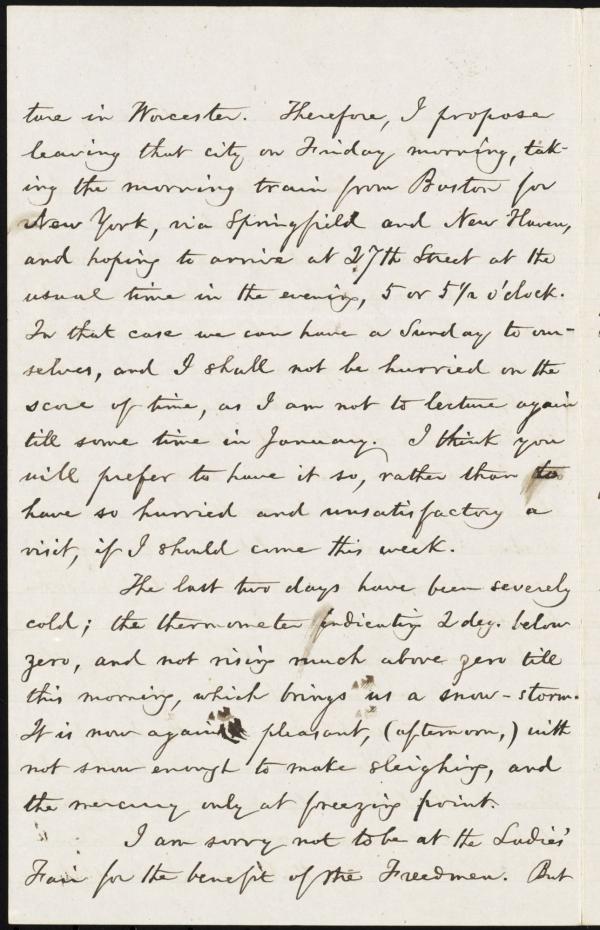 ture in Worcester. Therefore, I propose
leaving that city on Friday morning, tak-
ing the morning train from Boston for
New York, via Springfield and New Haven,
and hoping to arrive at 27th Street at the
usual time in the evening, 5 or 5 1/2 o'clock.
In that case we can have a Sunday to our-
selves, and I shall not be hurried on the
score of time, as I am not to lecture again
till some time in January. I think you
will prefer to have it so, rather than to
have so hurried and unsatisfactory a
visit, if I should come this week.
The last two days have been severely
cold; the thermometer indicating 2 deg. below
zero, and not rising much above zero till
this morning, which brings us a snow-storm.
It is now again pleasant, (afternoon,) with
not snow enough to make sleighing, and
the mercury only at freezing point.
I am sorry not to be at the Ladies'
Fair for the benefit of the Freedmen. But